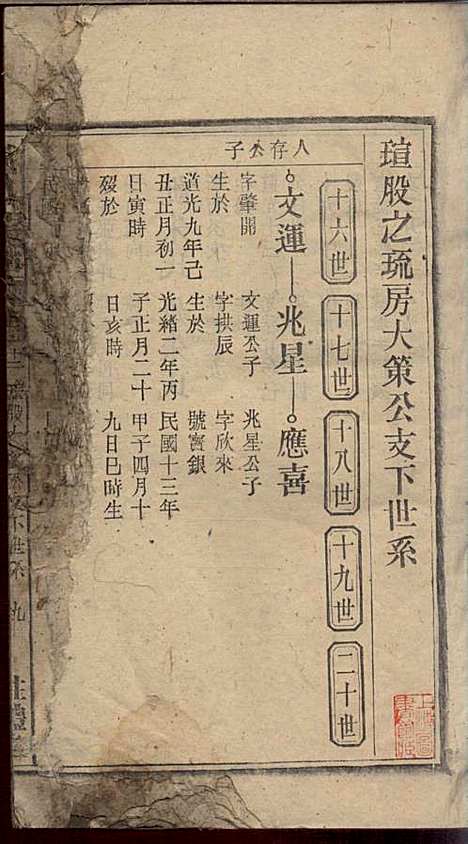 瑄股之珫房大策公支下世系
十六世
十七世
十八世
十九世
二十世
人存公子
文運
兆星
應喜
字肇開
生於
道光九年己
丑正月初一
日寅時
歿於
文運公子
字拱辰
生於
光緒二年丙
子正月二十
日亥時
兆星公子
字欣來
號寳銀
民國十三年
甲子四月十
九日巳時生
支下世系
九